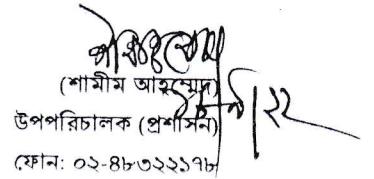 (শামীম আহম্মেদ)
উপপরিচালক (প্রশাসন)
ফোন: ০২-৪৮৩২২১৭৮